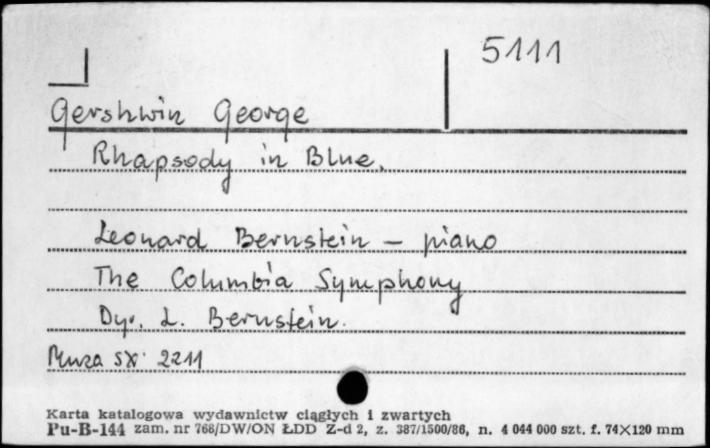 5111
Gershwin George
Rhapsody in Blue.
Leonard Bernstein - piano
The Columbia Symphony
Dyr. L. Bernstein.
Muza SX 2211
Karta katalogowa wydawnictw ciągłych i zwartych
Pu-B-144 zam. nr 766/DW/ON ŁDD Z-d 2, z. 387/1500/86, n. 4 044 000 szt. f. 74×120 mm